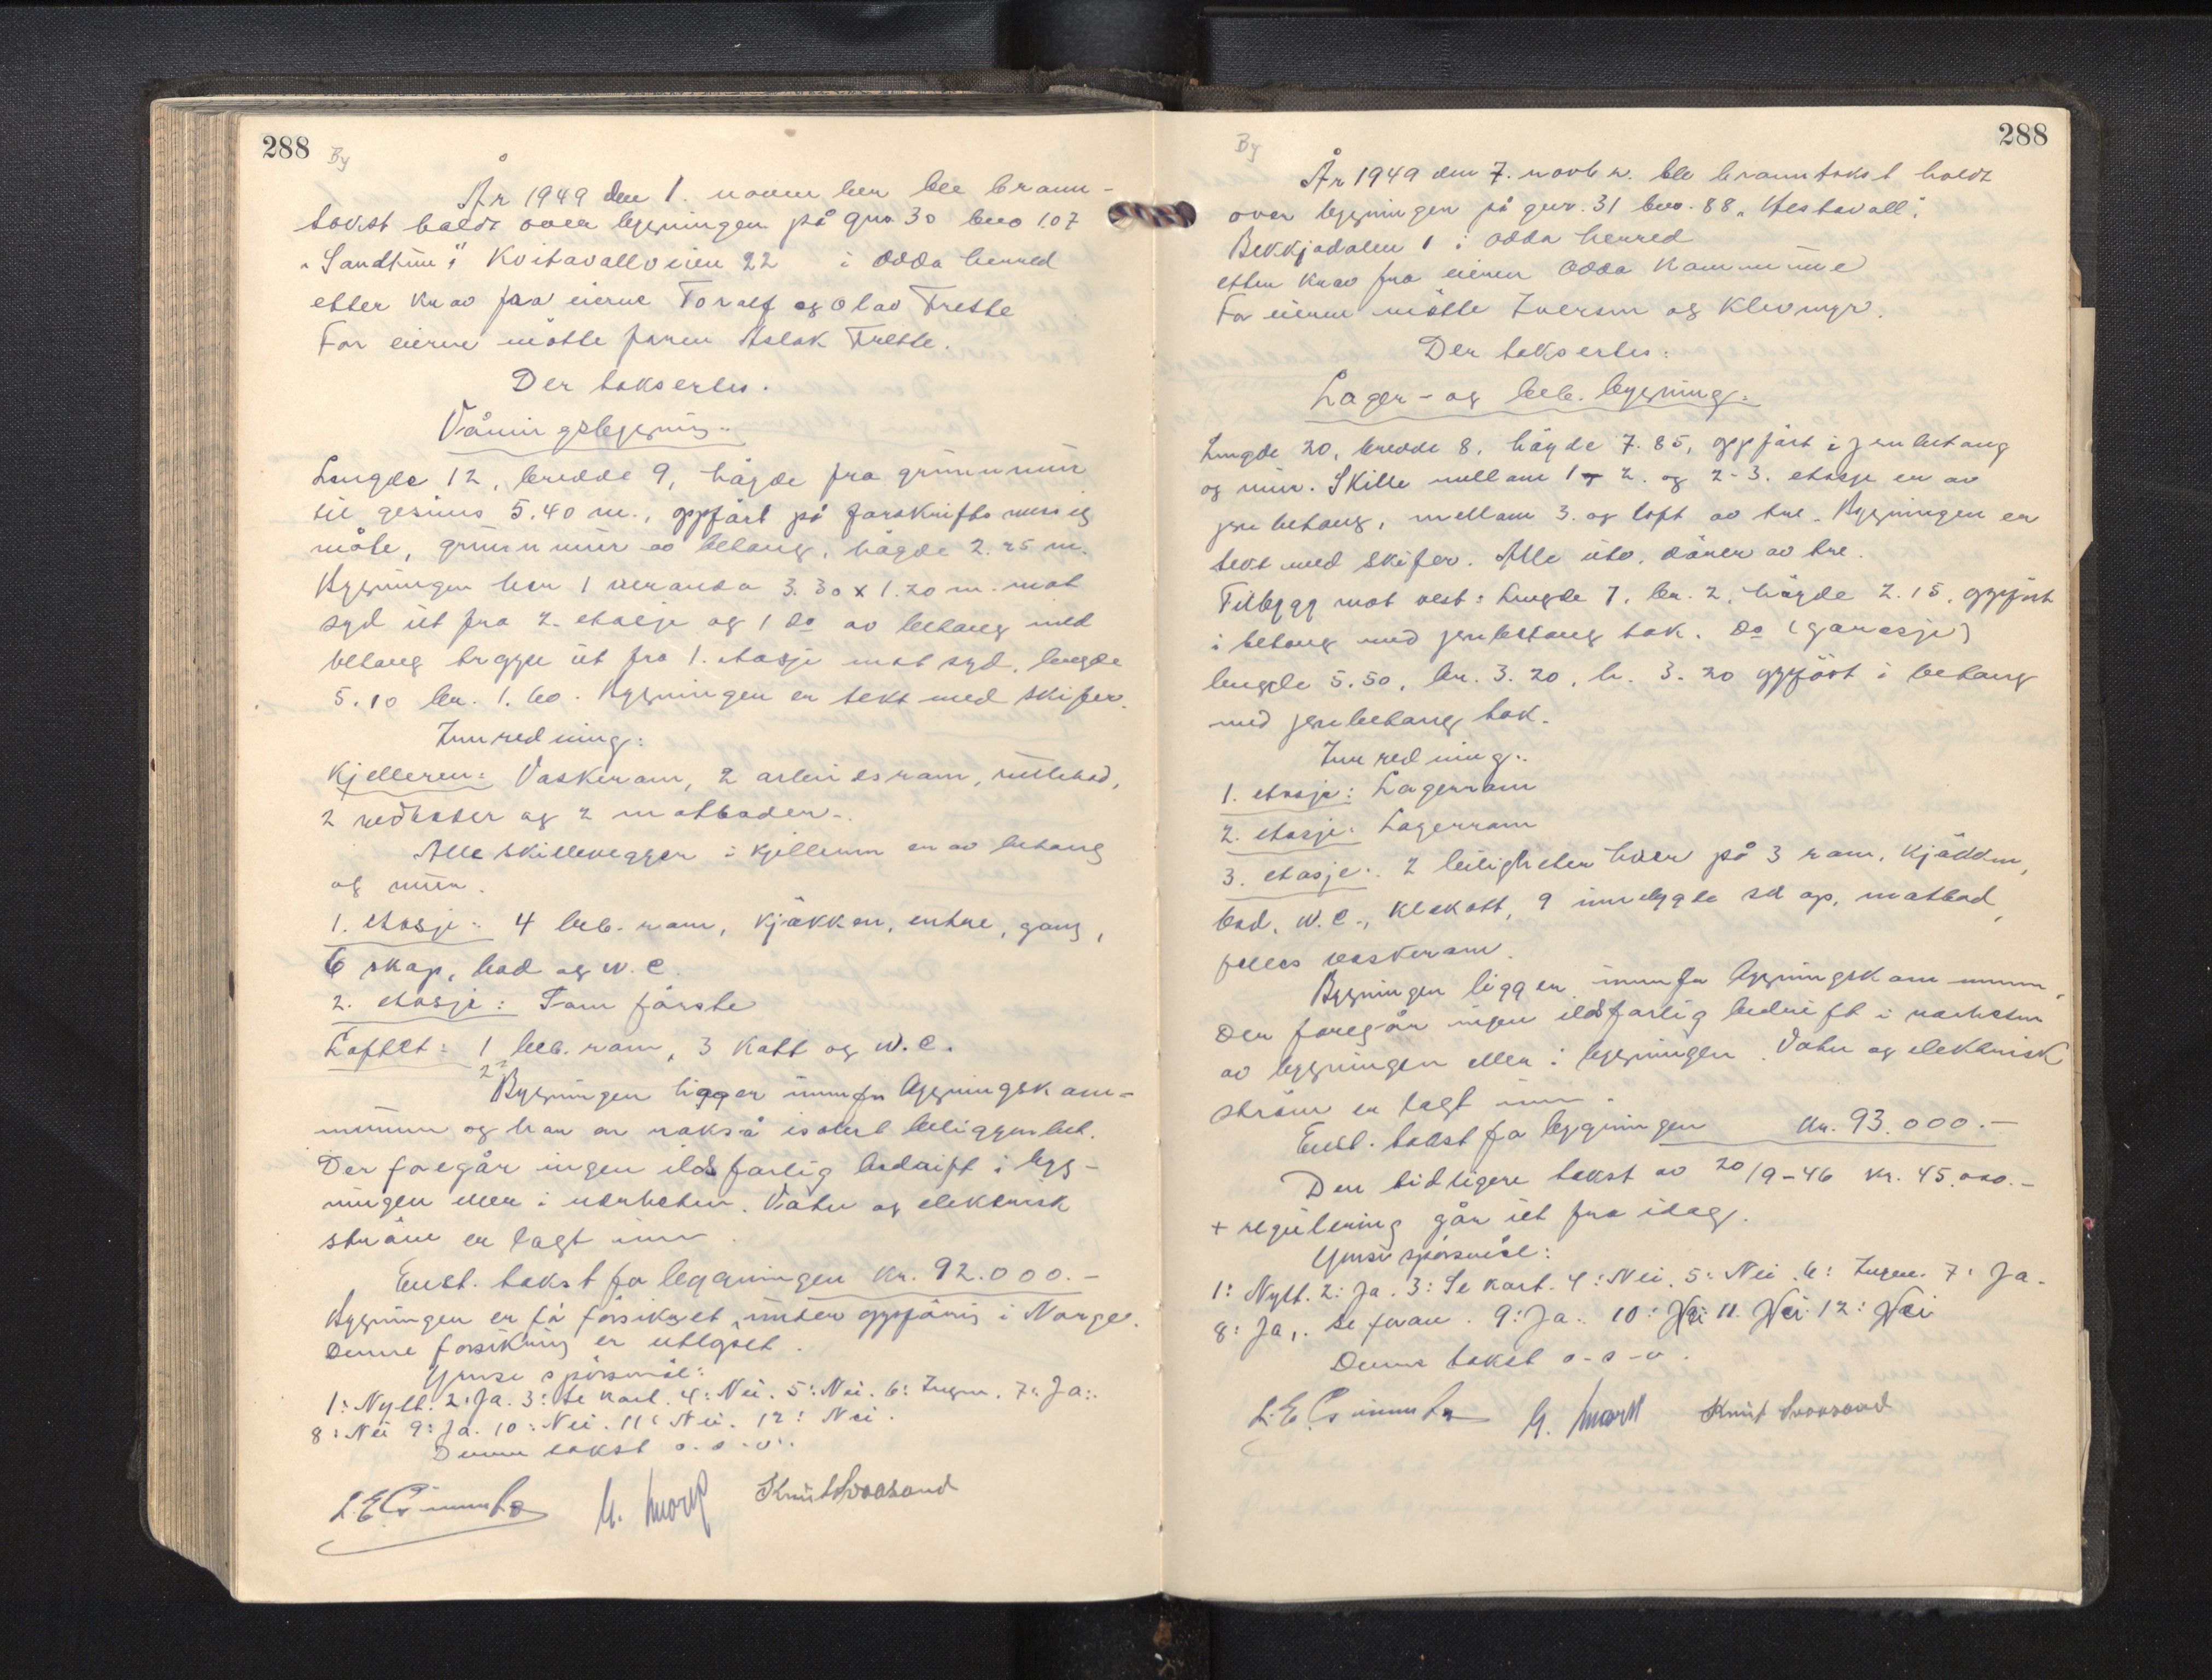 288
By
År 1949 den 1. november ble brann-
takst haldt over bygningen på gno 30 bno 107
"Sandtun", Kvitavallveien 22 i Odda herred
etter krav fra eierne Toralf og Olav Frette
For eierne møtte faren Aslak Frette.
Der taksertes.
Våningsbygning.
Lengde 12, bredde 9, høgde fra grunnmur
til gesims 5.40 m., oppført på forskriftsmessig
måte, grunnmur av betong, høgde 2.25 m.
Bygningen har 1 veranda 3.30 x 1.20 m. mot
syd ut fra 2. etasje og 1 do av betong med
betong trappe ut fra 1. etasje mot syd, lengde
5.10 br. 1.60. Bygningen er tekt med skifer.
Innredning:
Kjelleren: Vaskerom, 2 arbeidsrom, rullebod,
2 vedboder og 2 matboder.
Alle skillevegger i kjelleren er av betong
og mur.
1. etasje: 4 beb. rom, kjøkken, entre, gang,
6 skap, bad og W.C.
2. etasje: Som første
Loftet: 1 beb. rom, 3 kott og W.C.
2
Bygningen ligger innafor bygningskom-
munen og har en også isolert beliggenhet.
Der foregår ingen ildsfarlig bedrift i byg-
ningen eller i nærheten. Vatn og elektrisk
strøm er lagt inn.
Enst. takst for bygningen kr. 92.000.-
Bygningen er få forsikret under oppføring i Norge.
Denne forsikring er utløpet.
Ymse spørsmål:
1: Nytt. 2: Ja. 3: Se kart. 4: Nei. 5: Nei. 6: Ingen. 7: Ja.
8: Nei 9: Ja. 10: Nei. 11: Nei. 12: Nei.
Denne takst o.s.v.
Knut Svaasand
288
By
År 1949 den 7. novbr. ble branntakst holdt
over bygningen på gnr. 31 bno. 88 "Hestavoll",
Bekkjadalen 1 i Odda herred
etter krav fra eieren Odda Kommune
For eieren møtte Iversen og Klevmyr.
Der takseres:
Lager- og beb. bygning.
Lengde 20, bredde 8, høgde 7.85, oppført i jernbetong
og mur. Skille mellom 1-2. og 2-3. etasje er av
jernbetong, mellom 3. og loft av tre. Bygningen er
tekt med skifer. Alle utv. dører av tre.
Tilbygg mot vest: Lengde 7, br. 2, høgde 2.15, oppført
i betong med jernbetong tak. Do (garasje)
lengde 5.50, br. 3.20, h. 3.20 oppført i betong
med jernbetong tak.
Innredning:
1. etasje: Lagerrom
2. etasje: Lagerrom
3. etasje: 2 leiligheter hver på 3 rom, kjøkken,
bad, W.C., klekott, 9 innbygde skap, matbod,
felles vaskerom.
Bygningen ligger innafor bygningskommunen.
Der foregår ingen ildsfarlig bedrift i nærheten
av bygningen eller i bygningen. Vatn og elektrisk
strøm er lagt inn.
Enst. takst for bygningen kr. 93.000.-
Den tidligere takst av 20/9-46 kr. 45.000.-
+ regulering går ut fra idag.
Ymse spørsmål:
1: Nytt. 2: Ja. 3: Se kart. 4: Nei. 5: Nei. 6: Ingen. 7: Ja.
8: Ja, se foran. 9: Ja. 10: Nei 11. Nei 12: Nei
Denne takst o-s-v.
Knut Svaasand